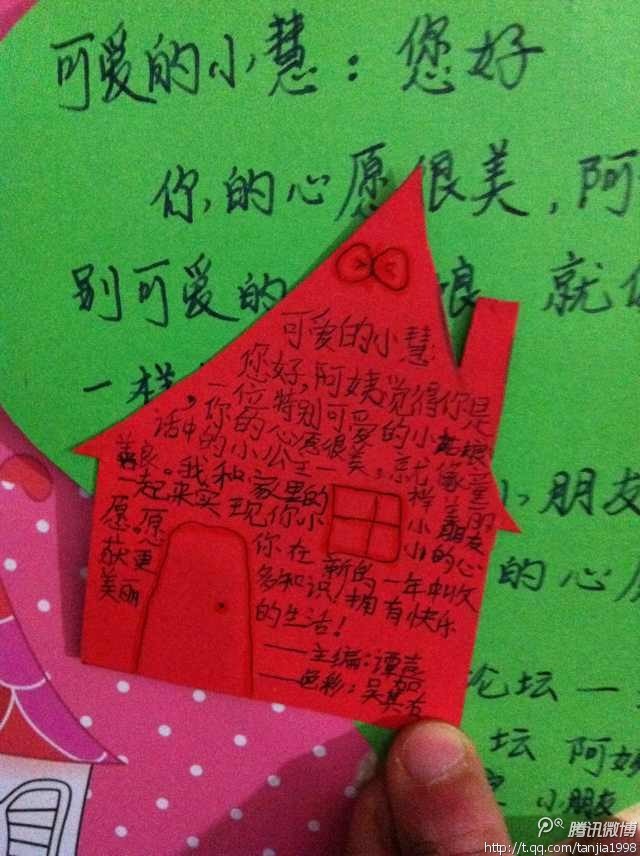 可爱的小慧：您好
你的心愿很美，阿
别可爱的 娘 就
一样，
小朋友
的心
论坛一
坛 阿姨
小朋友
可爱的小慧
您好，阿姨觉得你是
一位特别可爱的小姑娘
，你的心愿很美，就像童
话中的小公主一样
善良。我和家里的小朋友
一起来实现你小小的心
愿。愿你在新的一年中收
获更多知识，拥有快乐
美丽的生活！
——主编：谭
——色彩：吴其
腾讯微博
http://t.qq.com/tanjia1998